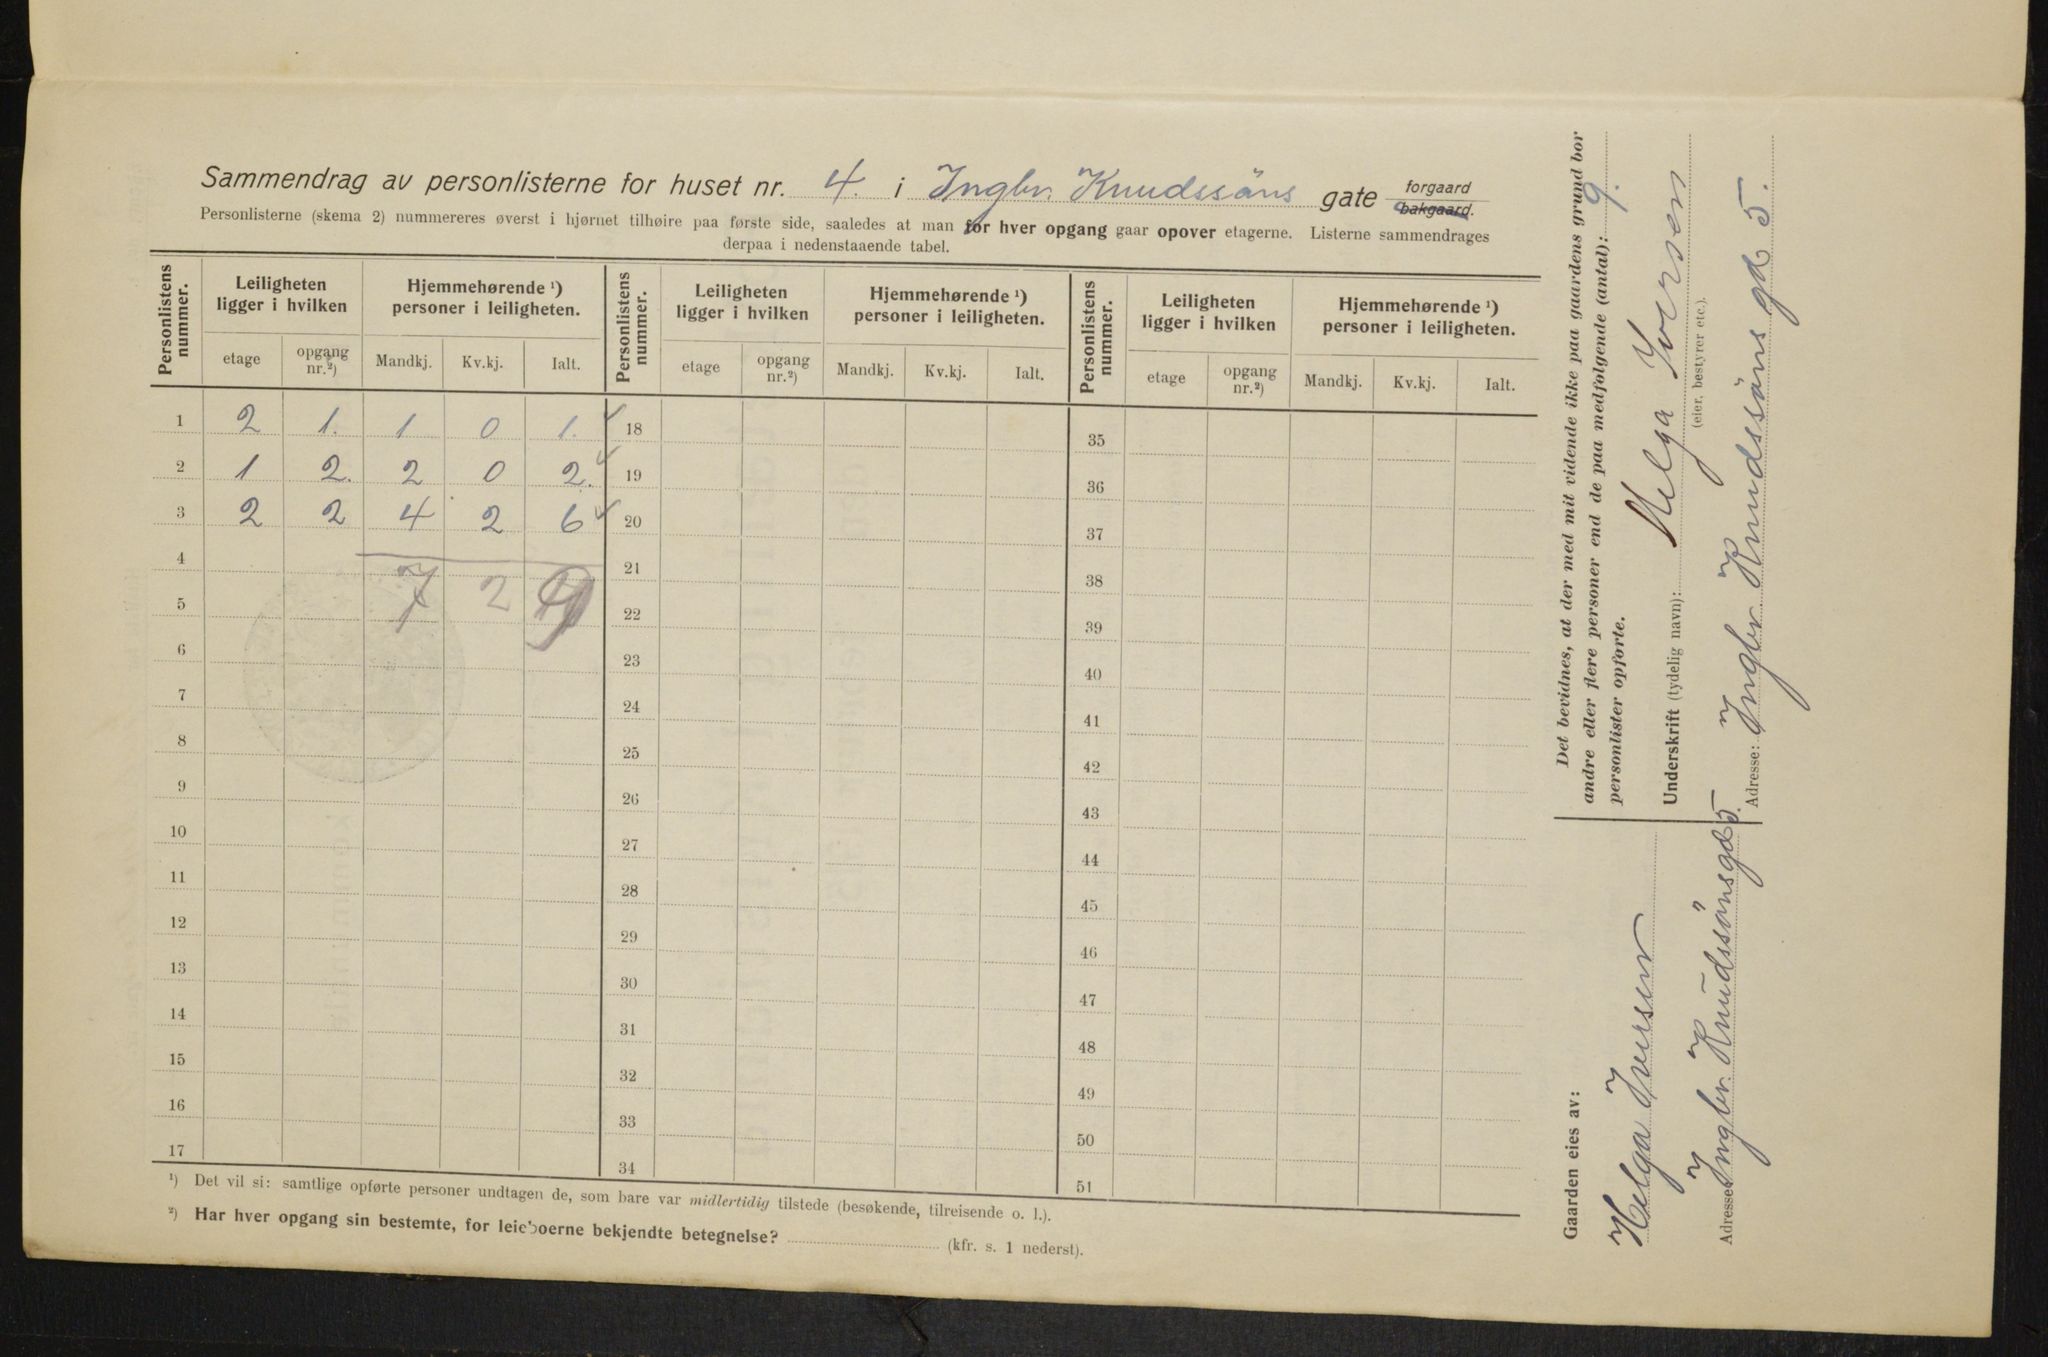 Sammendrag av personlisterne for huset nr. 4. i Ingbr. Knudssöns gate forgaard
bakgaard.
Personlisterne (skema 2) nummereres øverst i hjørnet tilhøire paa første side, saaledes at man for hver opgang gaar opover etagerne. Listerne sammendrages
derpaa i nedenstaaende tabel.
Personlistens nummer. Leiligheten ligger i hvilken Hjemmehørende ¹) personer i leiligheten. Personlistens nummer. Leiligheten ligger i hvilken Hjemmehørende ¹) personer i leiligheten. Personlistens nummer. Leiligheten ligger i hvilken Hjemmehørende ¹) personer i leiligheten.
etage opgang nr.²) Mandkj. Kv.kj. Ialt. etage opgang nr.²) Mandkj. Kv.kj. Ialt. etage opgang nr.²) Mandkj. Kv.kj. Ialt.
1 2 1. 1 0 1. 18 35
2 1 2. 2 0 2. 19 36
3 2 2 4 2 6 20 37
4 21 38
5 7 2 9 22 39
6 23 40
7 24 41
8 25 42
9 26 43
10 27 44
11 28 45
12 29 46
13 30 47
14 31 48
15 32 49
16 33 50
17 34 51
¹) Det vil si: samtlige opførte personer undtagen de, som bare var midlertidig tilstede (besøkende, tilreisende o. l.).
²) Har hver opgang sin bestemte, for leieboerne bekjendte betegnelse? (kfr. s. 1 nederst).
Det bevidnes, at der med mit vidende ikke paa gaardens grund bor
andre eller flere personer end de paa medfølgende (antal): 9.
personlister opførte.
Underskrift (tydelig navn): Helga Iversen
(eier, bestyrer etc.).
Adresse: Ingbr Knudssöns gd 5.
Gaarden eies av:
Helga Iversen
Adresse Ingbr. Knudssönsgd 5.